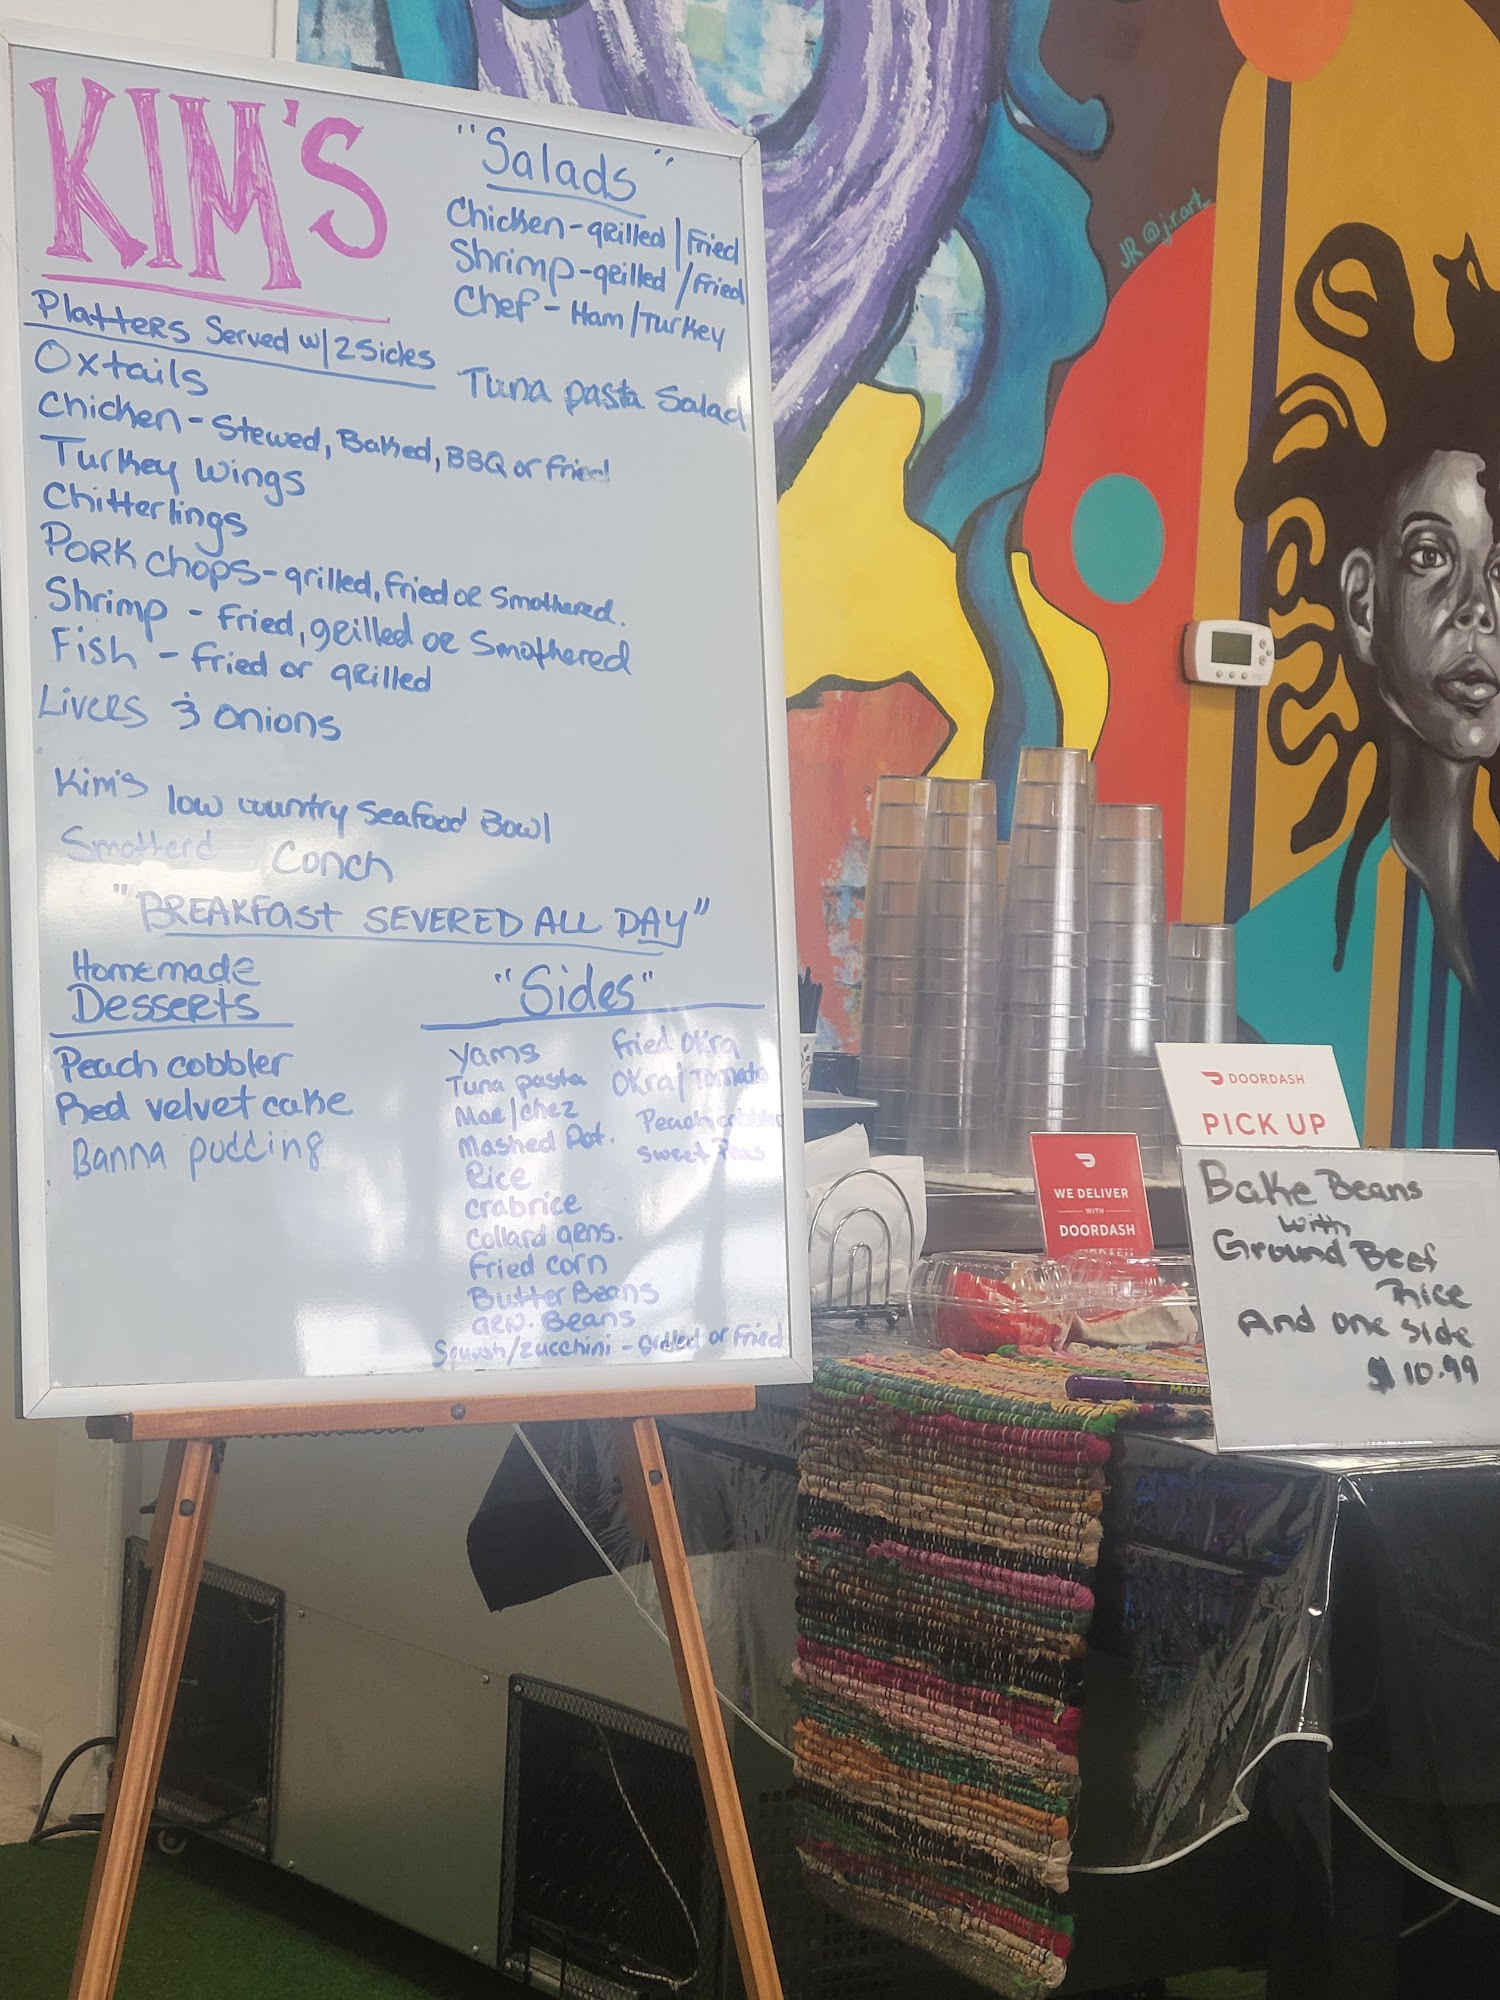 KIM'S
Platters Served w/ 2 Sides
Oxtails
Chicken - Stewed, Baked, BBQ or Fried
Turkey wings
Chitterlings
Pork chops - grilled, fried or Smothered.
Shrimp - Fried, grilled or Smothered
Fish - fried or grilled
Livers & onions
Kim's low country Seafood Bowl
Smotherd Conch
"Salads"
Chicken - grilled / Fried
Shrimp - grilled / Fried
Chef - Ham / Turkey
Tuna pasta Salad
"BREAKFast SEVERED ALL DAY"
Homemade
Desserts
Peach cobbler
Red velvet cake
Banna pudding
"Sides"
Yams
Tuna pasta
Mac/chez
Mashed Pot.
Rice
crabrice
Collard grns.
Fried corn
Butter Beans
Grn. Beans
Squash/zucchini - Grilled or Fried
fried okra
Okra/Tomato
Peach cobbler
Sweet Peas
JR @j.r.art_
DOORDASH
PICK UP
WE DELIVER
WITH
DOORDASH
Bake Beans
with
Ground Beef
Rice
And one side
$10.99